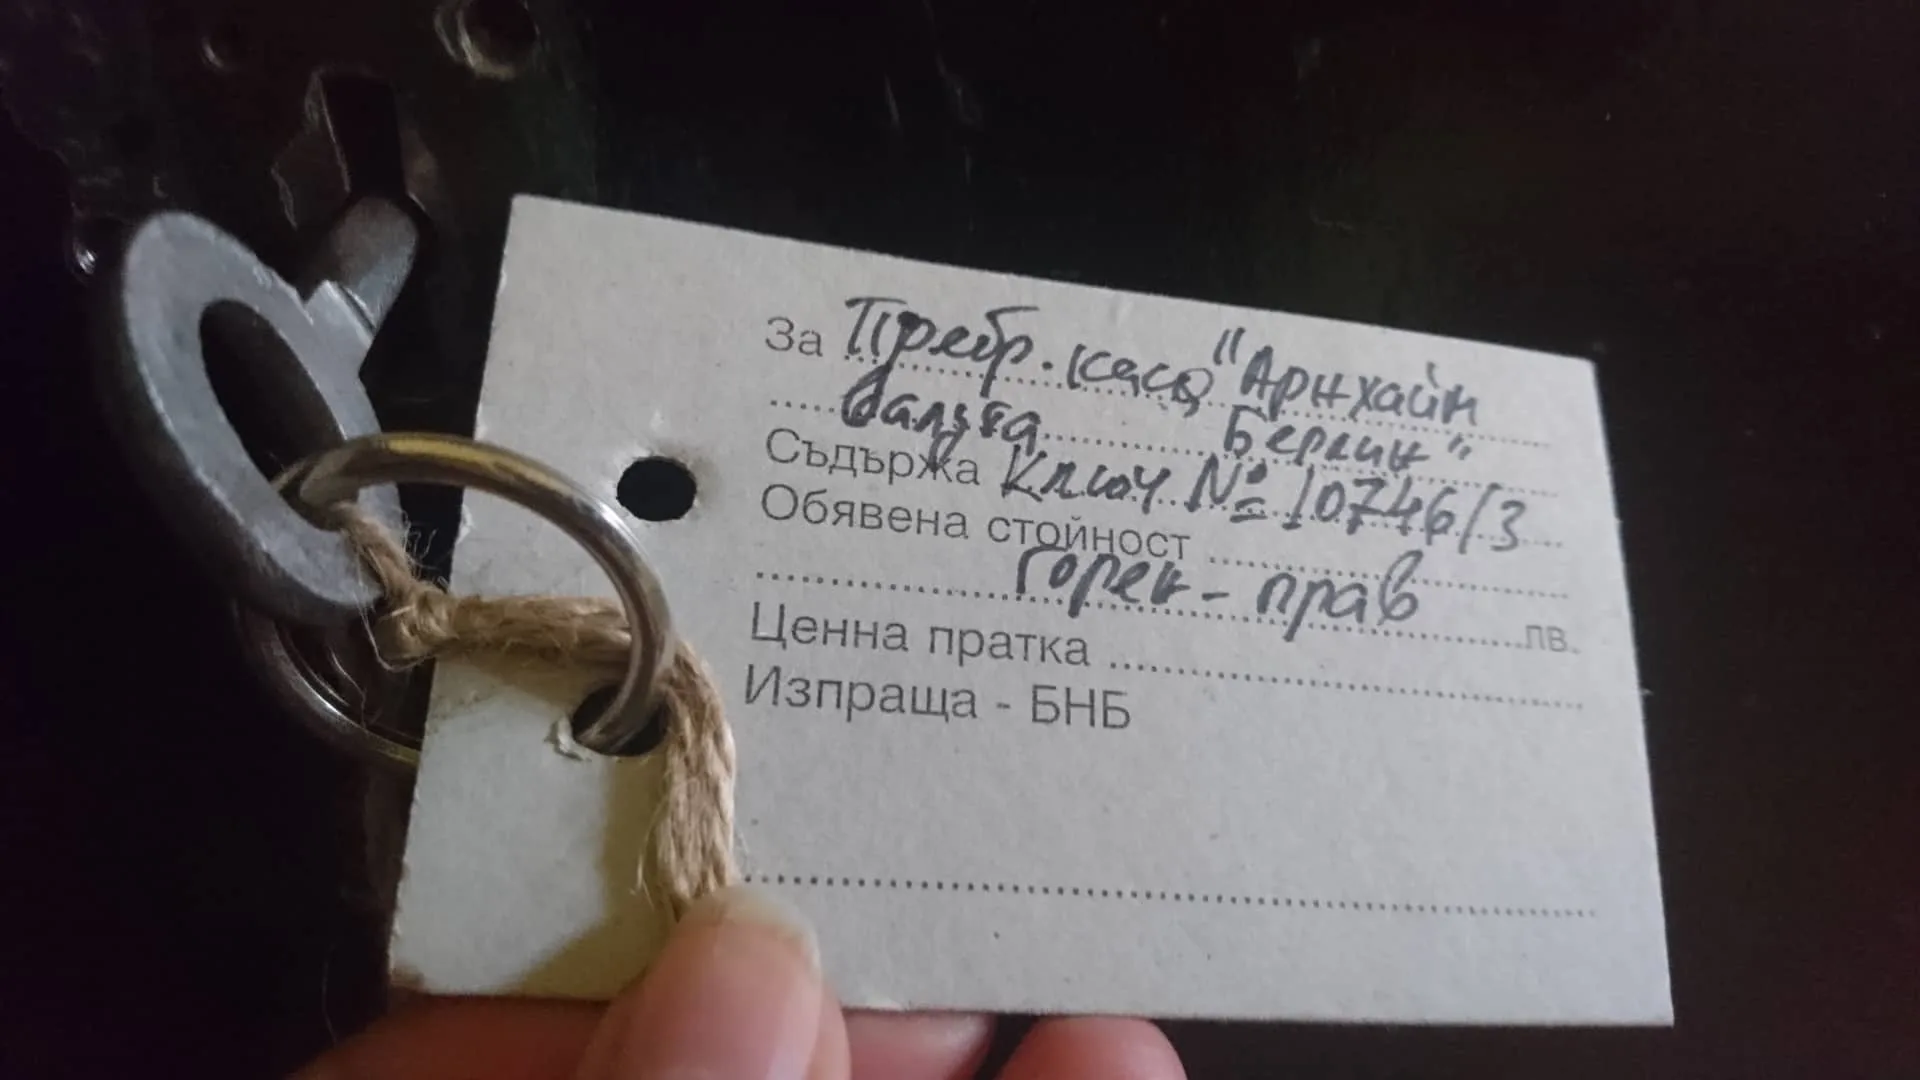 За Пребр. каса "Арнхайм
валута Берлин"
Съдържа Ключ № 10746/3
Обявена стойност
Горен - прав
лв.
Ценна пратка
Изпраща - БНБ